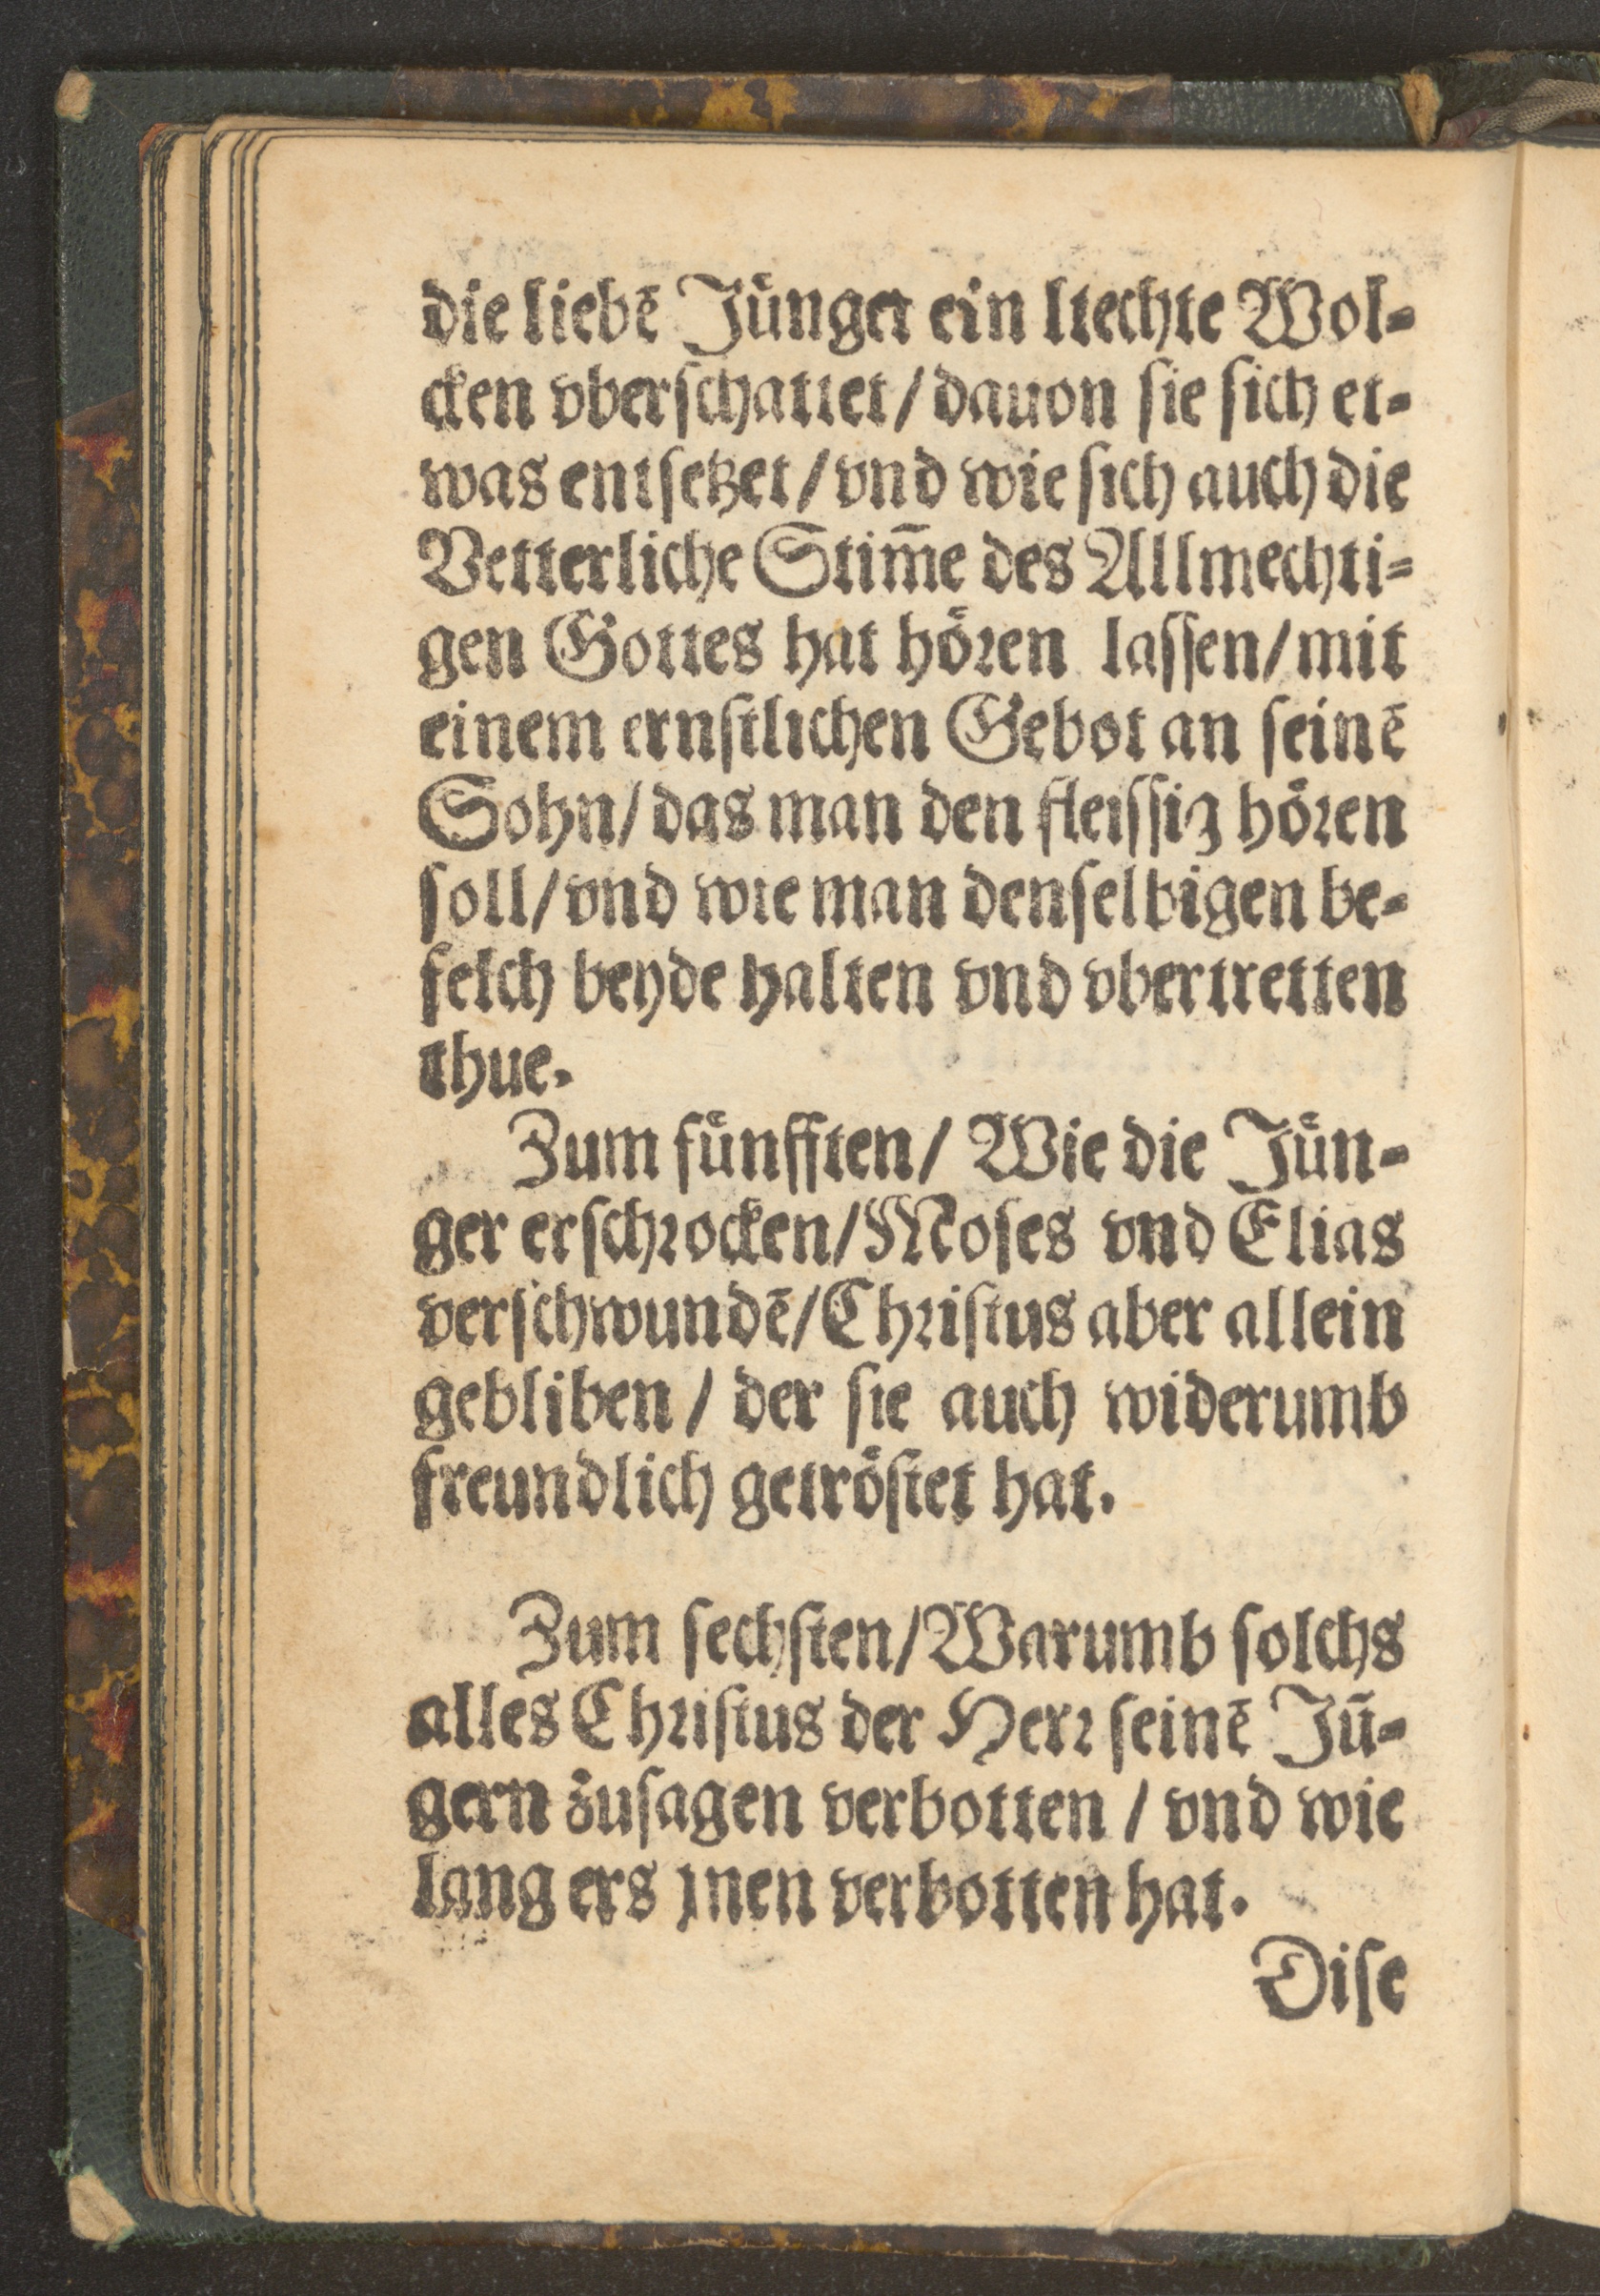 die liebē Jünger ein liechte Wol⸗
cken vberschattet/dauon sie sich et⸗
was entsetzet/vnd wie sich auch die
Vetterliche Stim̄e des Allmechti⸗
gen Gottes hat hören lassen/mit
einem ernstlichen Gebot an seinē
Sohn/das man den fleissig hören
soll/vnd wie man denselbigen be⸗
felch beyde halten vnd vbertretten
thue.
Zum fünfften/ Wie die Jün⸗
ger erschrocken/Moses vnd Elias
verschwundē/Christus aber allein
gebliben/ der sie auch widerumb
freundlich getröstet hat.
Zum sechsten/Warumb solchs
alles Christus der Herr seinē Jǖ⸗
gern zusagen verbotten / vnd wie
lang ers jnen verbotten hat.
Dise